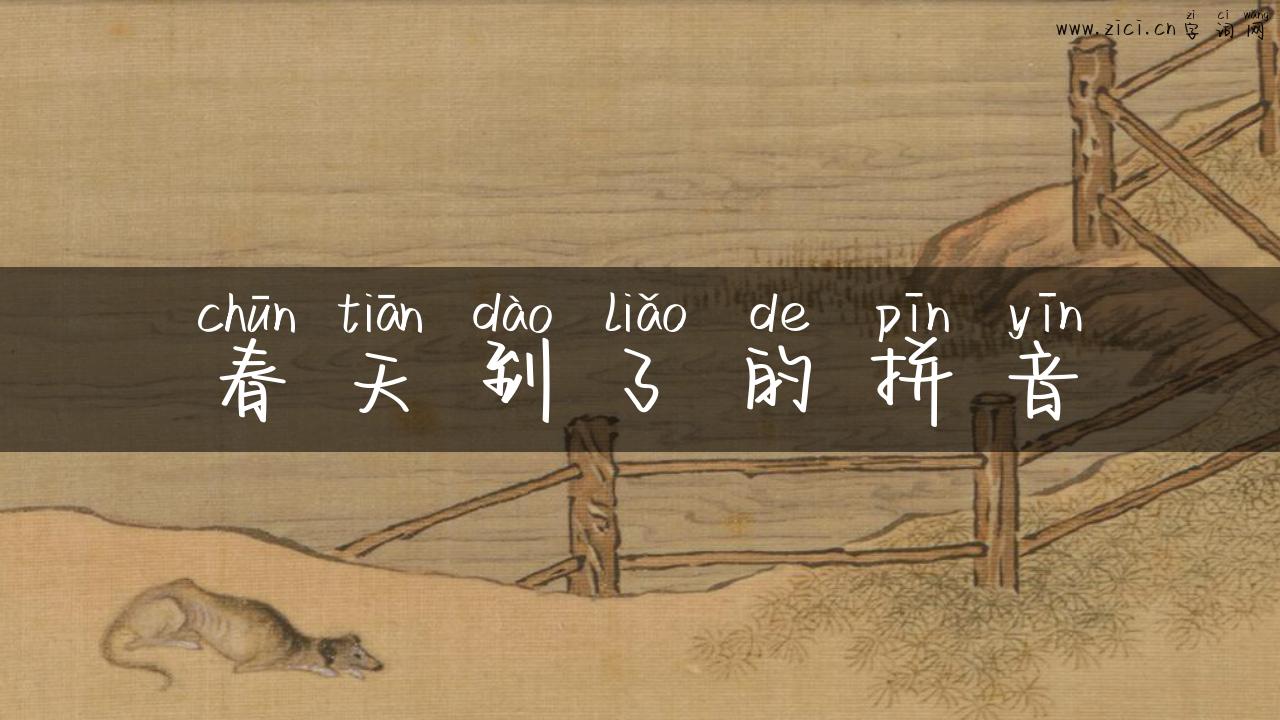 zì cí wǎng
www.zici.cn 字词网
chūn tiān dào liǎo de pīn yīn
春天到了的拼音